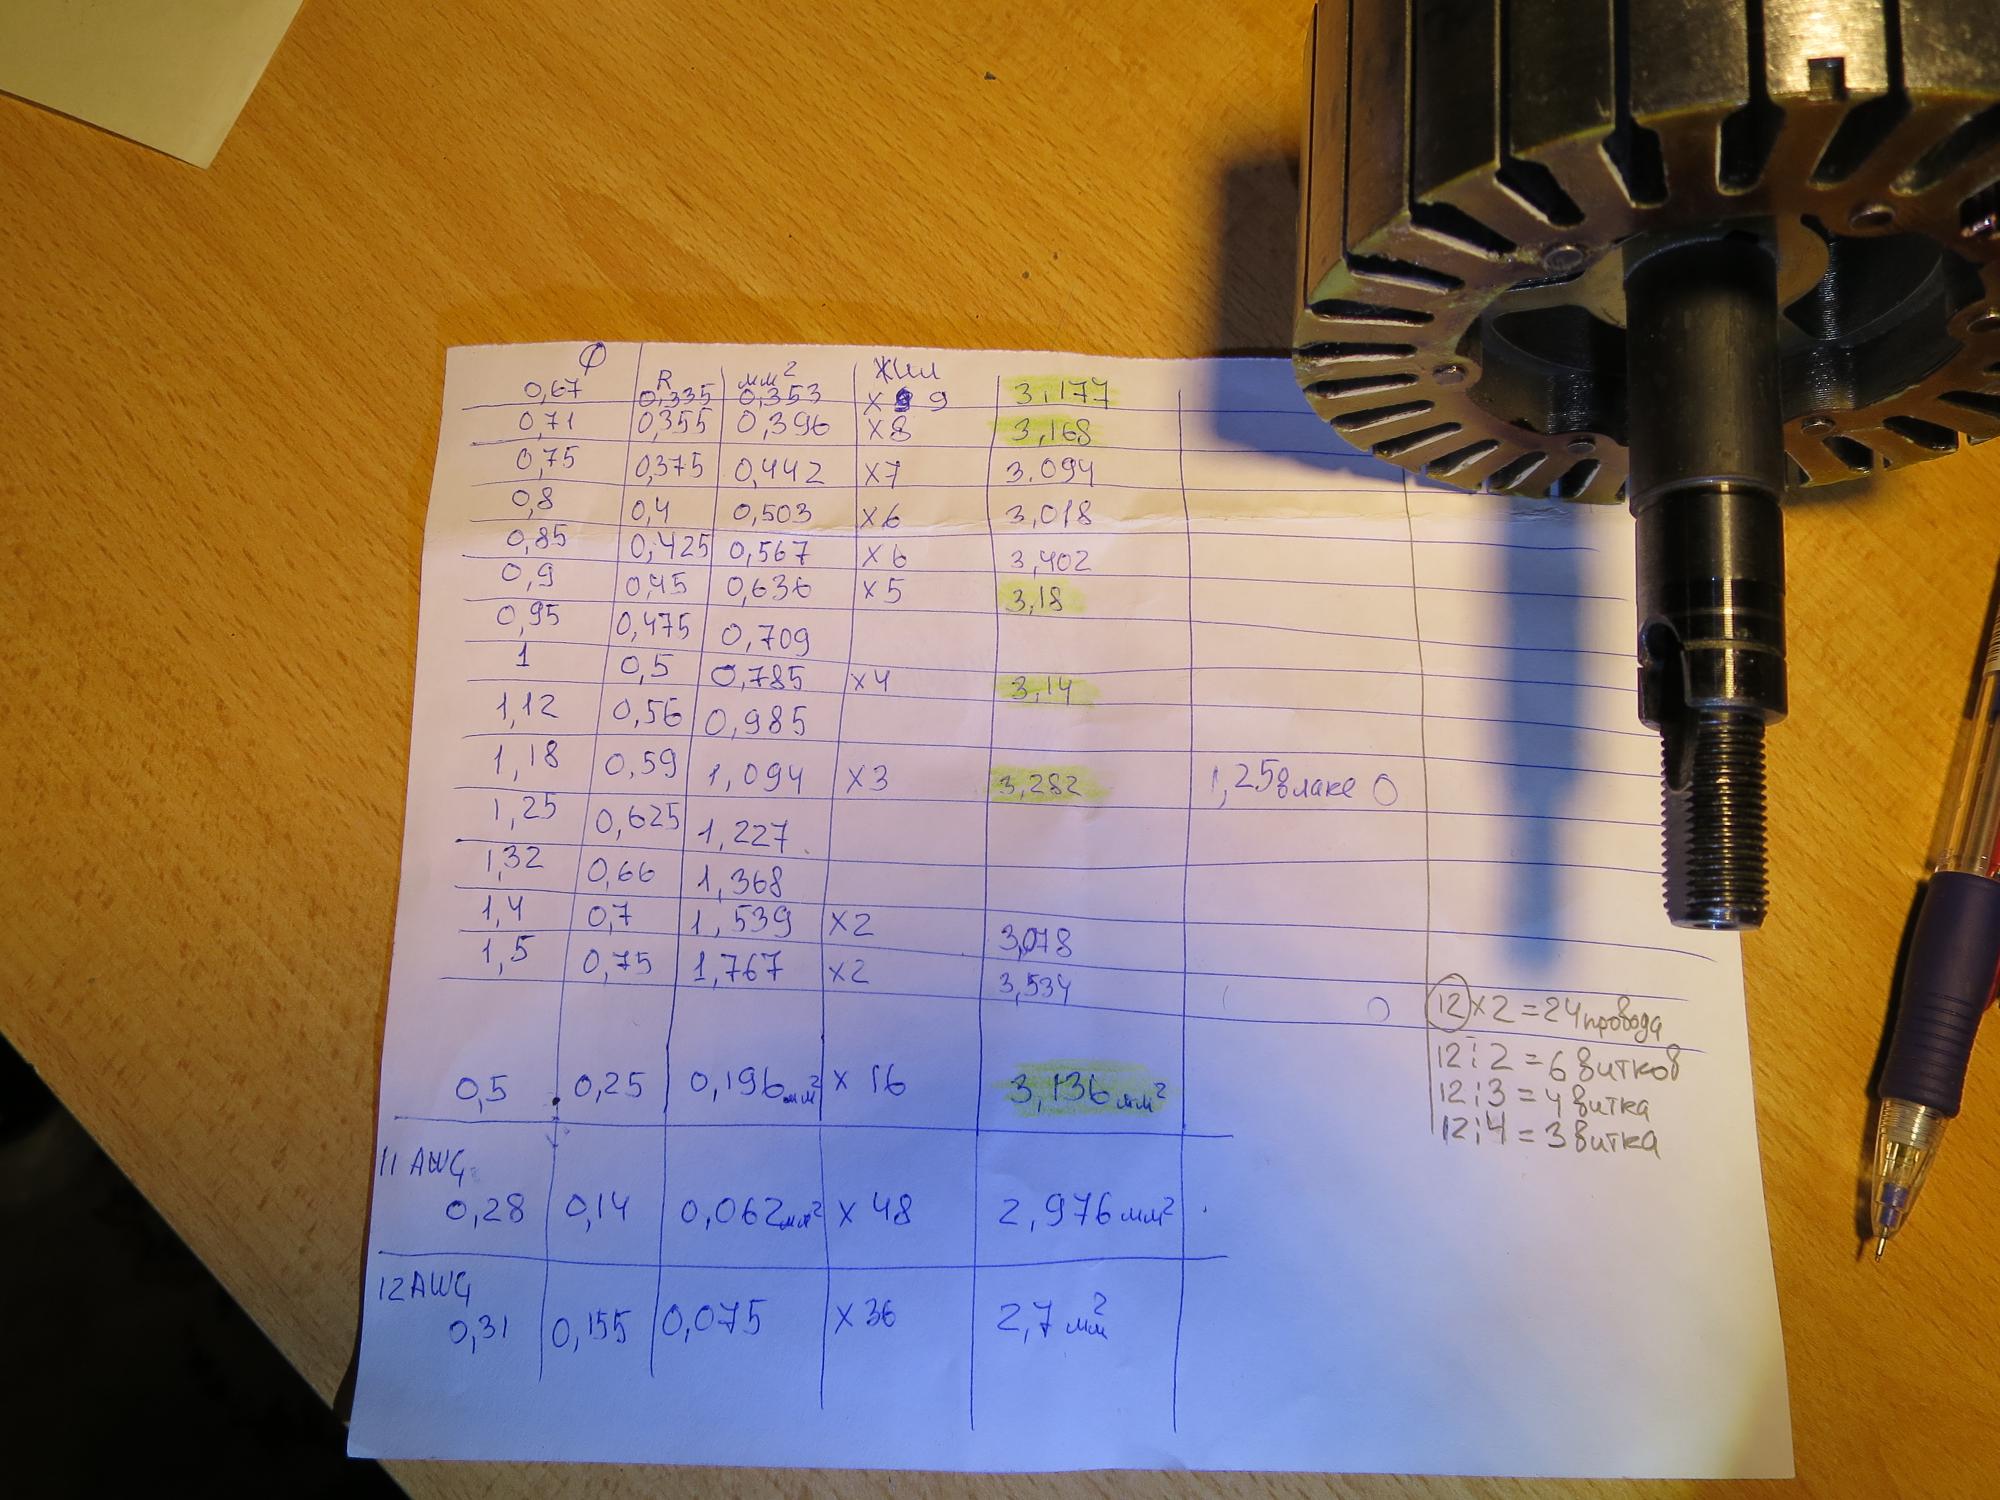 Ф R мм² жил
0,67 0,335 0,353 x 9 3,177
0,71 0,355 0,396 x8 3,168
0,75 0,375 0,442 x7 3.094
0,8 0,4 0,503 x6 3,018
0,85 0,425 0,567 x6 3,402
0,9 0,45 0,636 x5 3,18
0,95 0,475 0,709
1 0,5 0,785 x4 3,14
1,12 0,56 0,985
1,18 0,59 1,094 x3 3,282 1,25 в лаке 0
1,25 0,625 1,227
1,32 0,66 1,368
1,4 0,7 1,539 x2 3,078
1,5 0,75 1,767 x2 3,534
0
12 x 2 = 24 провода
12 : 2 = 6 витков
12 : 3 = 4 витка
12 : 4 = 3 витка
0,5 0,25 0,196 мм² x 16 3,136 мм²
11 AWG
0,28 0,14 0,062 мм² x 48 2,976 мм²
12 AWG
0,31 0,155 0,075 x 36 2,7 мм²